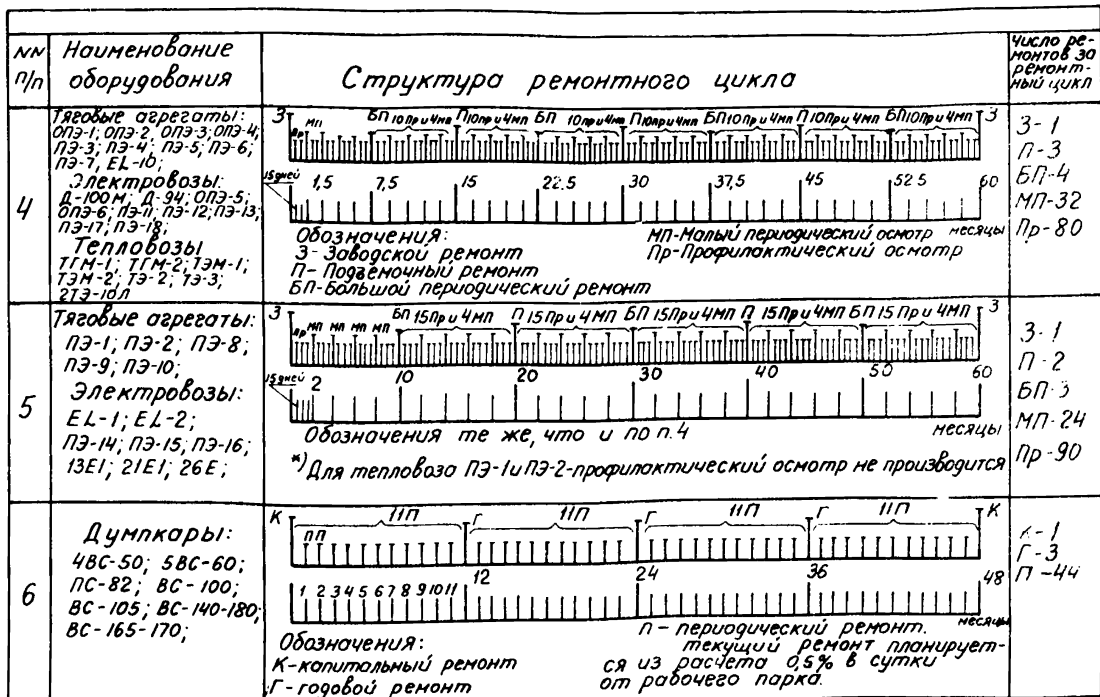 NN п/п
Наименование оборудования
Структура ремонтного цикла
Число ремонтов за ремонтный цикл
4
Тяговые агрегаты:
ОПЭ-1; ОПЭ-2, ОПЭ-3; ОПЭ-4,
ПЭ-3; ПЭ-4; ПЭ-5, ПЭ-6,
ПЭ-7, EL-10;
Электровозы:
Д-100М; Д-94; ОПЭ-5;
ОПЭ-6; ПЭ-11; ПЭ-12; ПЭ-13;
ПЭ-17; ПЭ-18;
Тепловозы
ТГМ-1; ТГМ-2; ТЭМ-1;
ТЭМ-2, ТЭ-2; ТЭ-3;
2ТЭ-10Л
З Пр МП БП 10 Пр и 4 МП П 10 Пр и 4 МП БП 10 Пр и 4 МП П 10 Пр и 4 МП БП 10 Пр и 4 МП П 10 Пр и 4 МП БП 10 Пр и 4 МП З
15 дней 1,5 7,5 15 22,5 30 37,5 45 52,5 60
месяцы
Обозначения:
З - Заводской ремонт
П - Подъемочный ремонт
БП - Большой периодический ремонт
МП - Малый периодический осмотр
Пр - Профилактический осмотр
З-1
П-3
БП-4
МП-32
Пр-80
5
Тяговые агрегаты:
ПЭ-1; ПЭ-2; ПЭ-8;
ПЭ-9; ПЭ-10;
Электровозы:
EL-1; EL-2;
ПЭ-14; ПЭ-15; ПЭ-16;
13Е1; 21Е1; 26Е;
З Пр МП МП МП МП БП 15 Пр и 4 МП П 15 Пр и 4 МП БП 15 Пр и 4 МП П 15 Пр и 4 МП БП 15 Пр и 4 МП З
15 дней 2 10 20 30 40 50 60
месяцы
Обозначения те же, что и по п. 4
*) Для тепловоза ПЭ-1 и ПЭ-2 - профилактический осмотр не производится
З-1
П-2
БП-3
МП-24
Пр-90
6
Думпкары:
4ВС-50; 5ВС-60;
ПС-82; ВС-100;
ВС-105; ВС-140-180;
ВС-165-170;
К пп 11П Г 11П Г 11П Г 11П К
1 2 3 4 5 6 7 8 9 10 11 12 24 36 48
месяцы
Обозначения:
К - капитальный ремонт
Г - годовой ремонт
П - периодический ремонт.
текущий ремонт планирует-
ся из расчета 0,5% в сутки
от рабочего парка.
К-1
Г-3
П-44